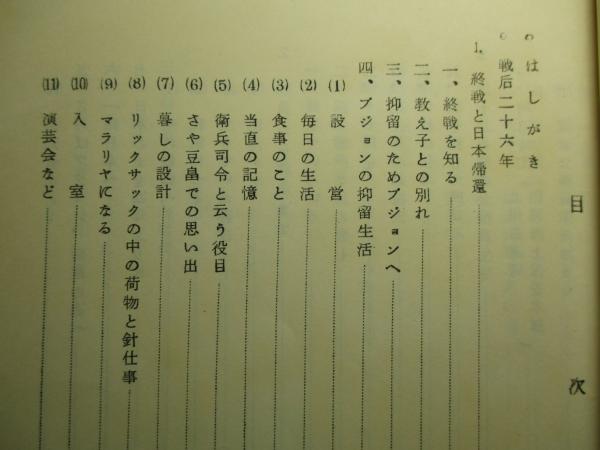 目次
○ はしがき
○ 戦后二十六年
1. 終戦と日本帰還
一、終戦を知る
二、教え子との別れ
三、抑留のためブジョンへ
四、ブジョンの抑留生活
(1) 設営
(2) 毎日の生活
(3) 食事のこと
(4) 当直の記憶
(5) 衛兵司令と云う役目
(6) さや豆畠での思い出
(7) 暮しの設計
(8) リックサックの中の荷物と針仕事
(9) マラリヤになる
(10) 入室
(11) 演芸会など